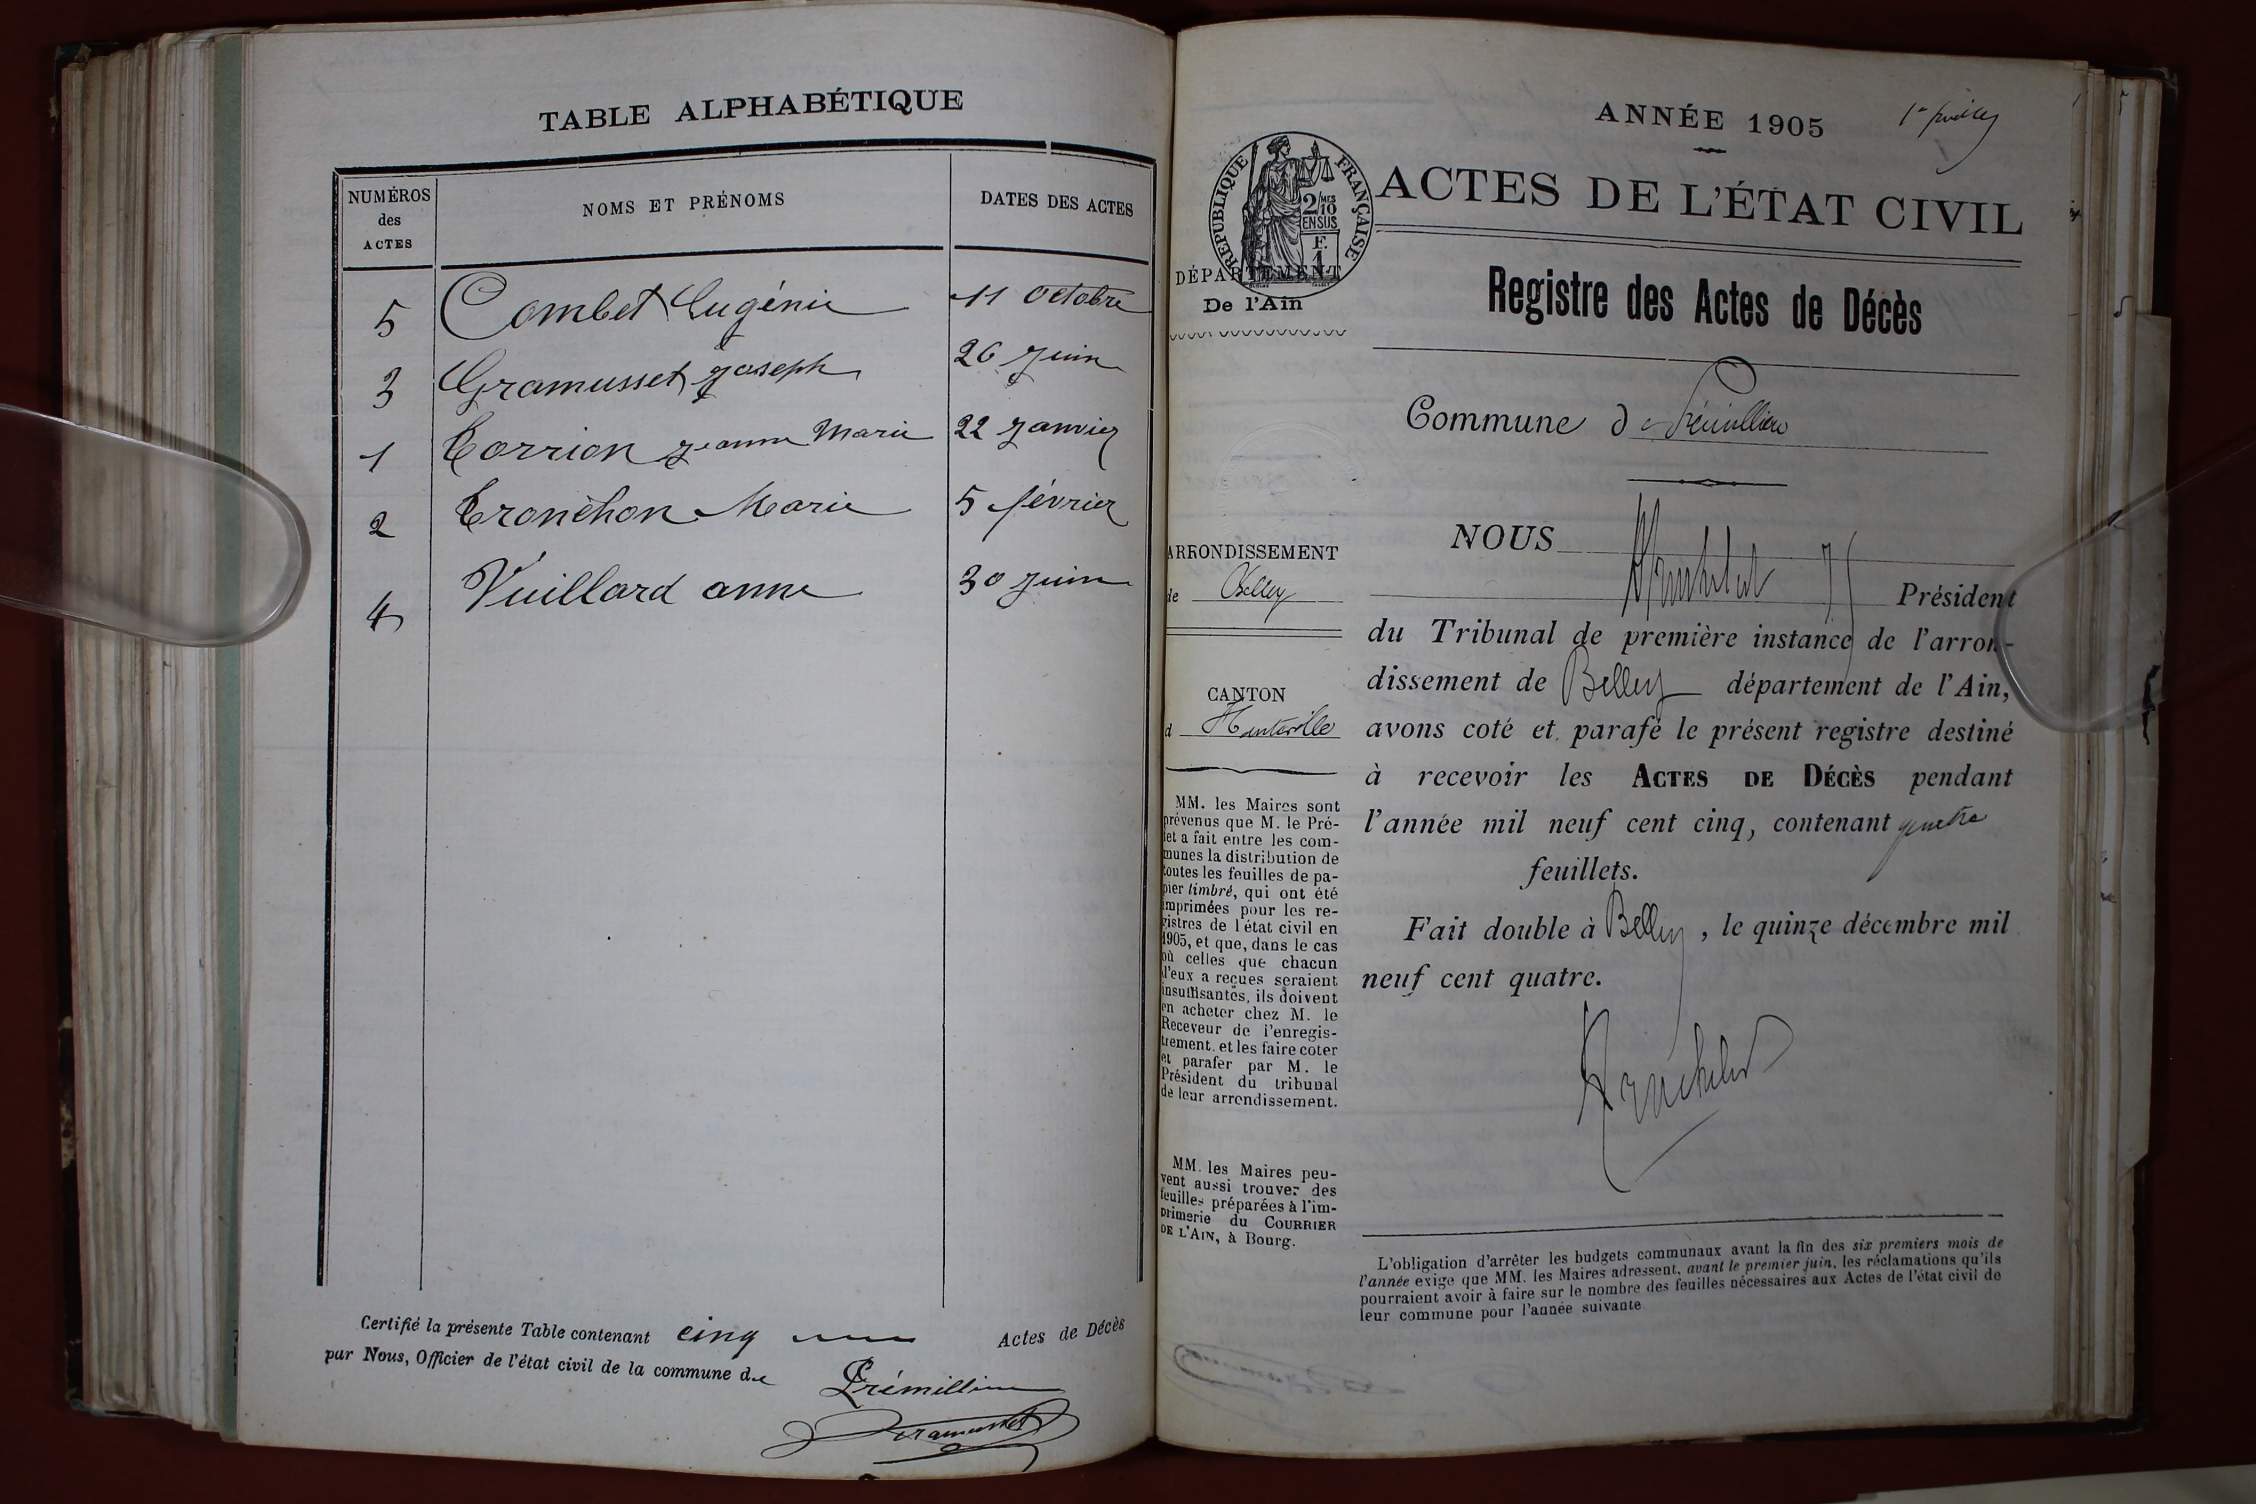 TABLE ALPHABÉTIQUE
NUMÉROS des ACTES
NOMS ET PRÉNOMS
DATES DES ACTES
5 Combet Eugénie 11 octobre
3 Gramusset Joseph 26 Juin
1 Torrion Jeanne Marie 22 Janvier
2 Tronchon Marie 5 février
4 Vuillard anne 30 Juin
Certifié la présente Table contenant cinq Actes de Décès
par Nous, Officier de l'état civil de la commune de Prémillieu
Gramusset
ANNÉE 1905
RÉPUBLIQUE FRANÇAISE
2/10
EN SUS
F.
1
ACTES DE L'ÉTAT CIVIL
DÉPARTEMENT
De l'Ain
Registre des Actes de Décès
Commune de Prémillieu
ARRONDISSEMENT
de Belley
CANTON
d Hauteville
MM. les Maires sont
prévenus que M. le Pré-
fet a fait entre les com-
munes la distribution de
toutes les feuilles de pa-
pier timbré, qui ont été
imprimées pour les re-
gistres de l'état civil en
1905, et que, dans le cas
où celles que chacun
d'eux a reçues seraient
insuffisantes, ils doivent
en acheter chez M. le
Receveur de l'enregis-
trement, et les faire coter
et parafer par M. le
Président du tribunal
de leur arrondissement.
MM. les Maires peu-
vent aussi trouver des
feuilles préparées à l'im-
primerie du COURRIER
DE L'AIN, à Bourg.
NOUS
Président
du Tribunal de première instance de l'arron-
dissement de Belley département de l'Ain,
avons coté et parafé le présent registre destiné
à recevoir les ACTES DE DÉCÈS pendant
l'année mil neuf cent cinq, contenant quatre
feuillets.
Fait double à Belley, le quinze décembre mil
neuf cent quatre.
L'obligation d'arrêter les budgets communaux avant la fin des six premiers mois de
l'année exige que MM. les Maires adressent, avant le premier juin, les réclamations qu'ils
pourraient avoir à faire sur le nombre des feuilles nécessaires aux Actes de l'état civil de
leur commune pour l'année suivante